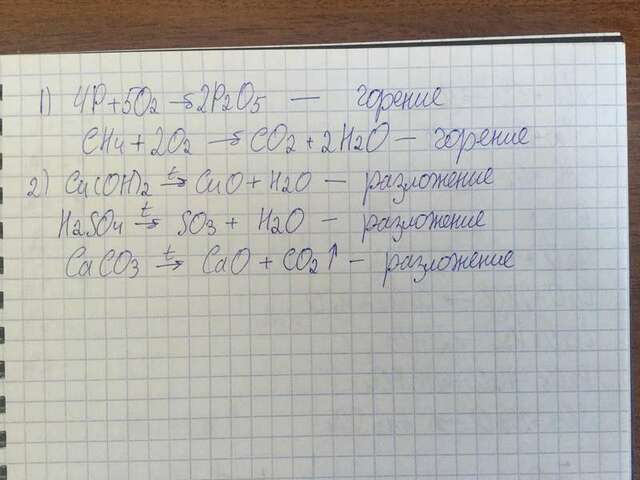 1) 4P + 5O2 → 2P2O5 — горение
CH4 + 2O2 → CO2 + 2H2O — горение
2) Cu(OH)2 t→ CuO + H2O — разложение
H2SO4 t→ SO3 + H2O — разложение
CaCO3 t→ CaO + CO2↑ — разложение